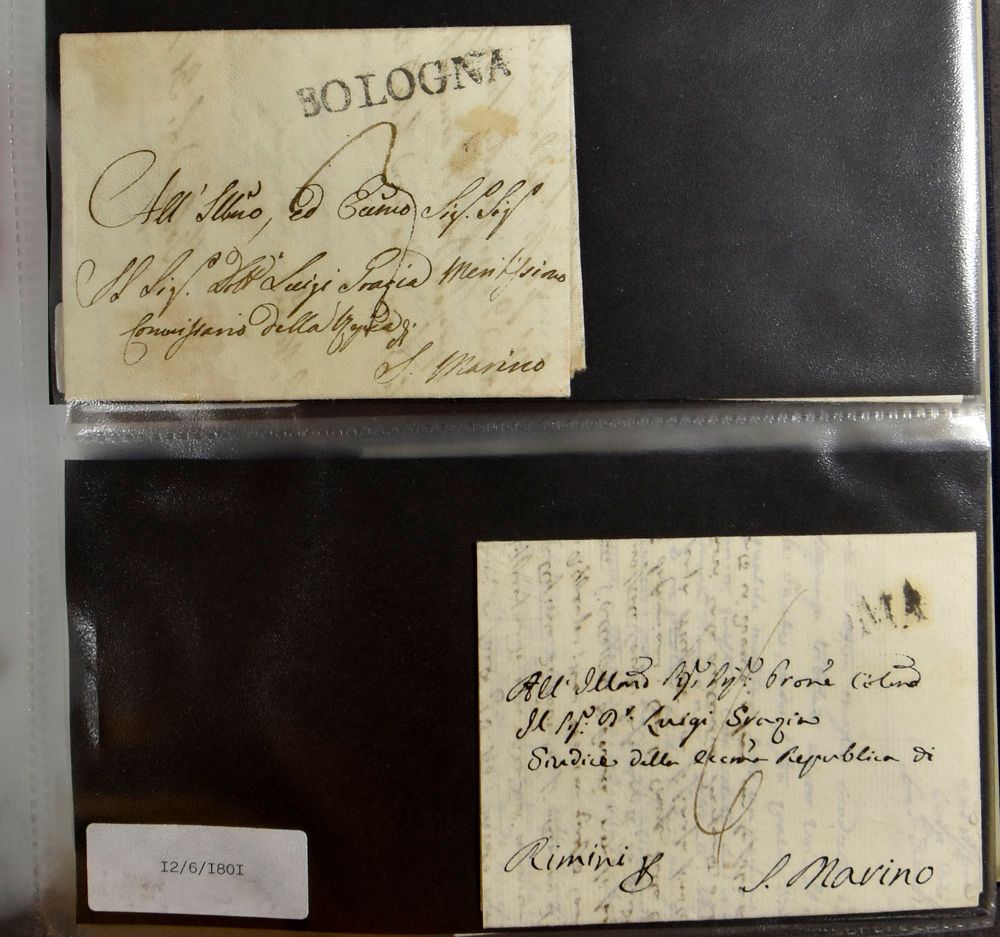 BOLOGNA
3
All' Illmo, ed Eccmo Sigr. Sigr
Il Sigr. Dottr Luigi Grazia Meritissimo
Commissario della Rpca di
S. Marino
MA
All' Illmo Sigr. Sigr. Prone Colmo
Il Sigr. Dr. Luigi Grazia
Giudice della Eccma Repubblica di
Rimini S. Marino
12/6/1801